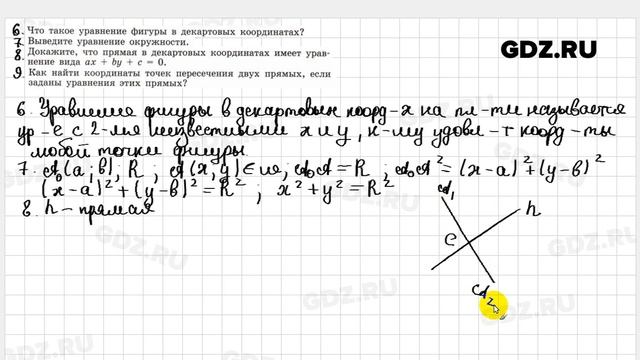 6. Что такое уравнение фигуры в декартовых координатах?
7. Выведите уравнение окружности.
8. Докажите, что прямая в декартовых координатах имеет урав-
нение вида ax + by + c = 0.
9. Как найти координаты точек пересечения двух прямых, если
заданы уравнения этих прямых?
GDZ.RU
6. Уравнение фигуры в декартовых коорд-х на пл-ти называется
ур-е с 2-мя неизвестными x и y, к-му удовл-т коорд-ты
любой точки фигуры.
7. A₀(a; в), R; A(x; y) ∈ ω; A₀A = R; A₀A² = (x-a)² + (y-в)²
(x-a)² + (y-в)² = R² ; x² + y² = R²
8. h - прямая
A₁
h
C
A₂